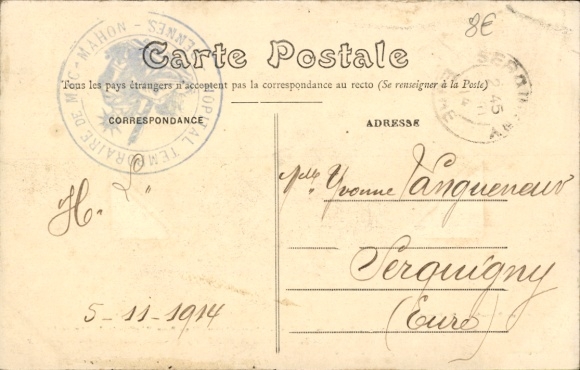 8€
Carte Postale
Tous les pays étrangers n'acceptent pas la correspondance au recto (Se renseigner à la Poste)
HÔPITAL TEMPORAIRE DE MAC-MAHON - RENNES
SERQUIGNY
2 45
EURE
CORRESPONDANCE
ADRESSE
H.
5-11-1914
Mlle Yvonne
Serquigny
(Eure)